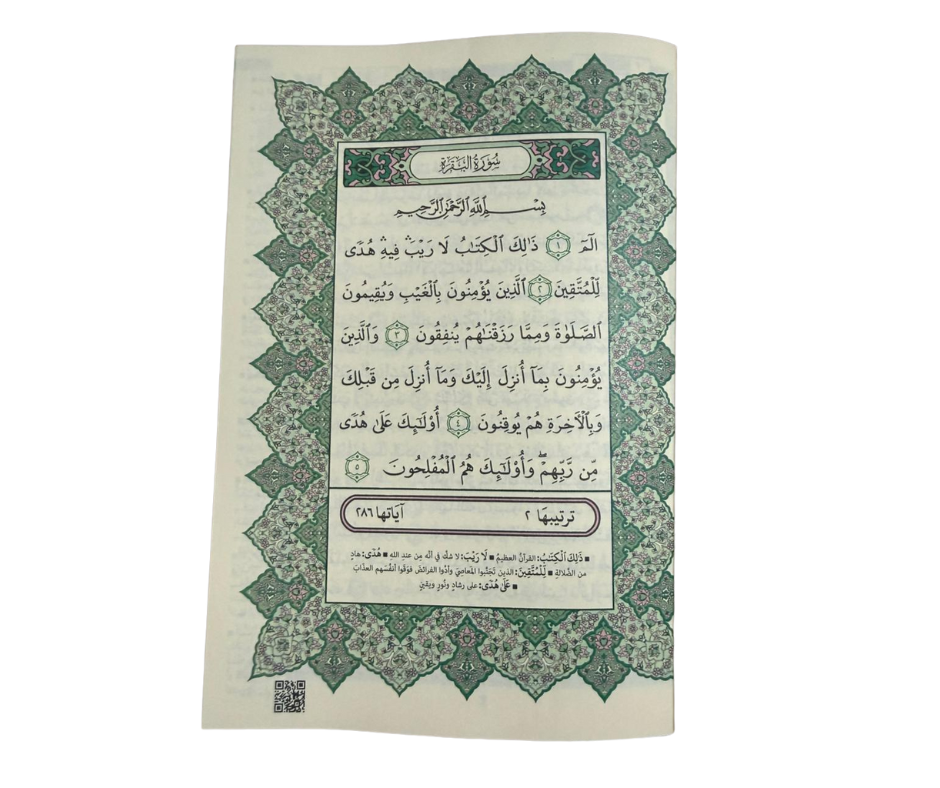 سُورَةُ البَقَرَةِ
بِسْمِ ٱللَّهِ ٱلرَّحْمَٰنِ ٱلرَّحِيمِ
الٓمٓ ١ ذَٰلِكَ ٱلْكِتَٰبُ لَا رَيْبَ ۛ فِيهِ ۛ هُدًى
لِّلْمُتَّقِينَ ٢ ٱلَّذِينَ يُؤْمِنُونَ بِٱلْغَيْبِ وَيُقِيمُونَ
ٱلصَّلَوٰةَ وَمِمَّا رَزَقْنَٰهُمْ يُنفِقُونَ ٣ وَٱلَّذِينَ
يُؤْمِنُونَ بِمَآ أُنزِلَ إِلَيْكَ وَمَآ أُنزِلَ مِن قَبْلِكَ
وَبِٱلْأَخِرَةِ هُمْ يُوقِنُونَ ٤ أُو۟لَٰٓئِكَ عَلَىٰ هُدًى
مِّن رَّبِّهِمْ ۖ وَأُو۟لَٰٓئِكَ هُمُ ٱلْمُفْلِحُونَ ٥
ترتيبهَا ٢ آيَاتها ٢٨٦
■ ذَٰلِكَ ٱلْكِتَٰبُ: القرآنُ العظيمُ ■ لَا رَيْبَ: لا شكَّ في أنَّه مِن عندِ الله ■ هُدًى: هادٍ
من الضَّلالةِ ■ لِّلْمُتَّقِينَ: الذين تَجَنَّبوا المعاصِيَ وأدَّوا الفرائضَ فوَقَوا أنفُسَهم العذابَ
■ عَلَىٰ هُدًى: على رشادٍ ونُورٍ ويقينٍ